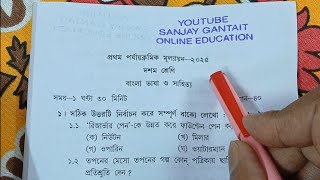 YOUTUBE
SANJAY GANTAIT
ONLINE EDUCATION
প্রথম পর্যায়ক্রমিক মূল্যায়ন—২০২৫
দশম শ্রেণি
বাংলা ভাষা ও সাহিত্য
সময়—১ ঘণ্টা ৩০ মিনিট
—৪০
১। সঠিক উত্তরটি নির্বাচন করে সম্পূর্ণ বাক্যে লেখো
১.১ 'রিজার্ভার পেন'-কে উন্নত করে ফাউন্টেন পেন
(ক) নিউটন (খ) মিলার
(গ) ওপারিন (ঘ) ওয়াটারম্যান
১.২ তপনের মেসো তপনের গল্প কোন্ পত্রিকায় ছা
প্রতিশ্রুতি দেন ?